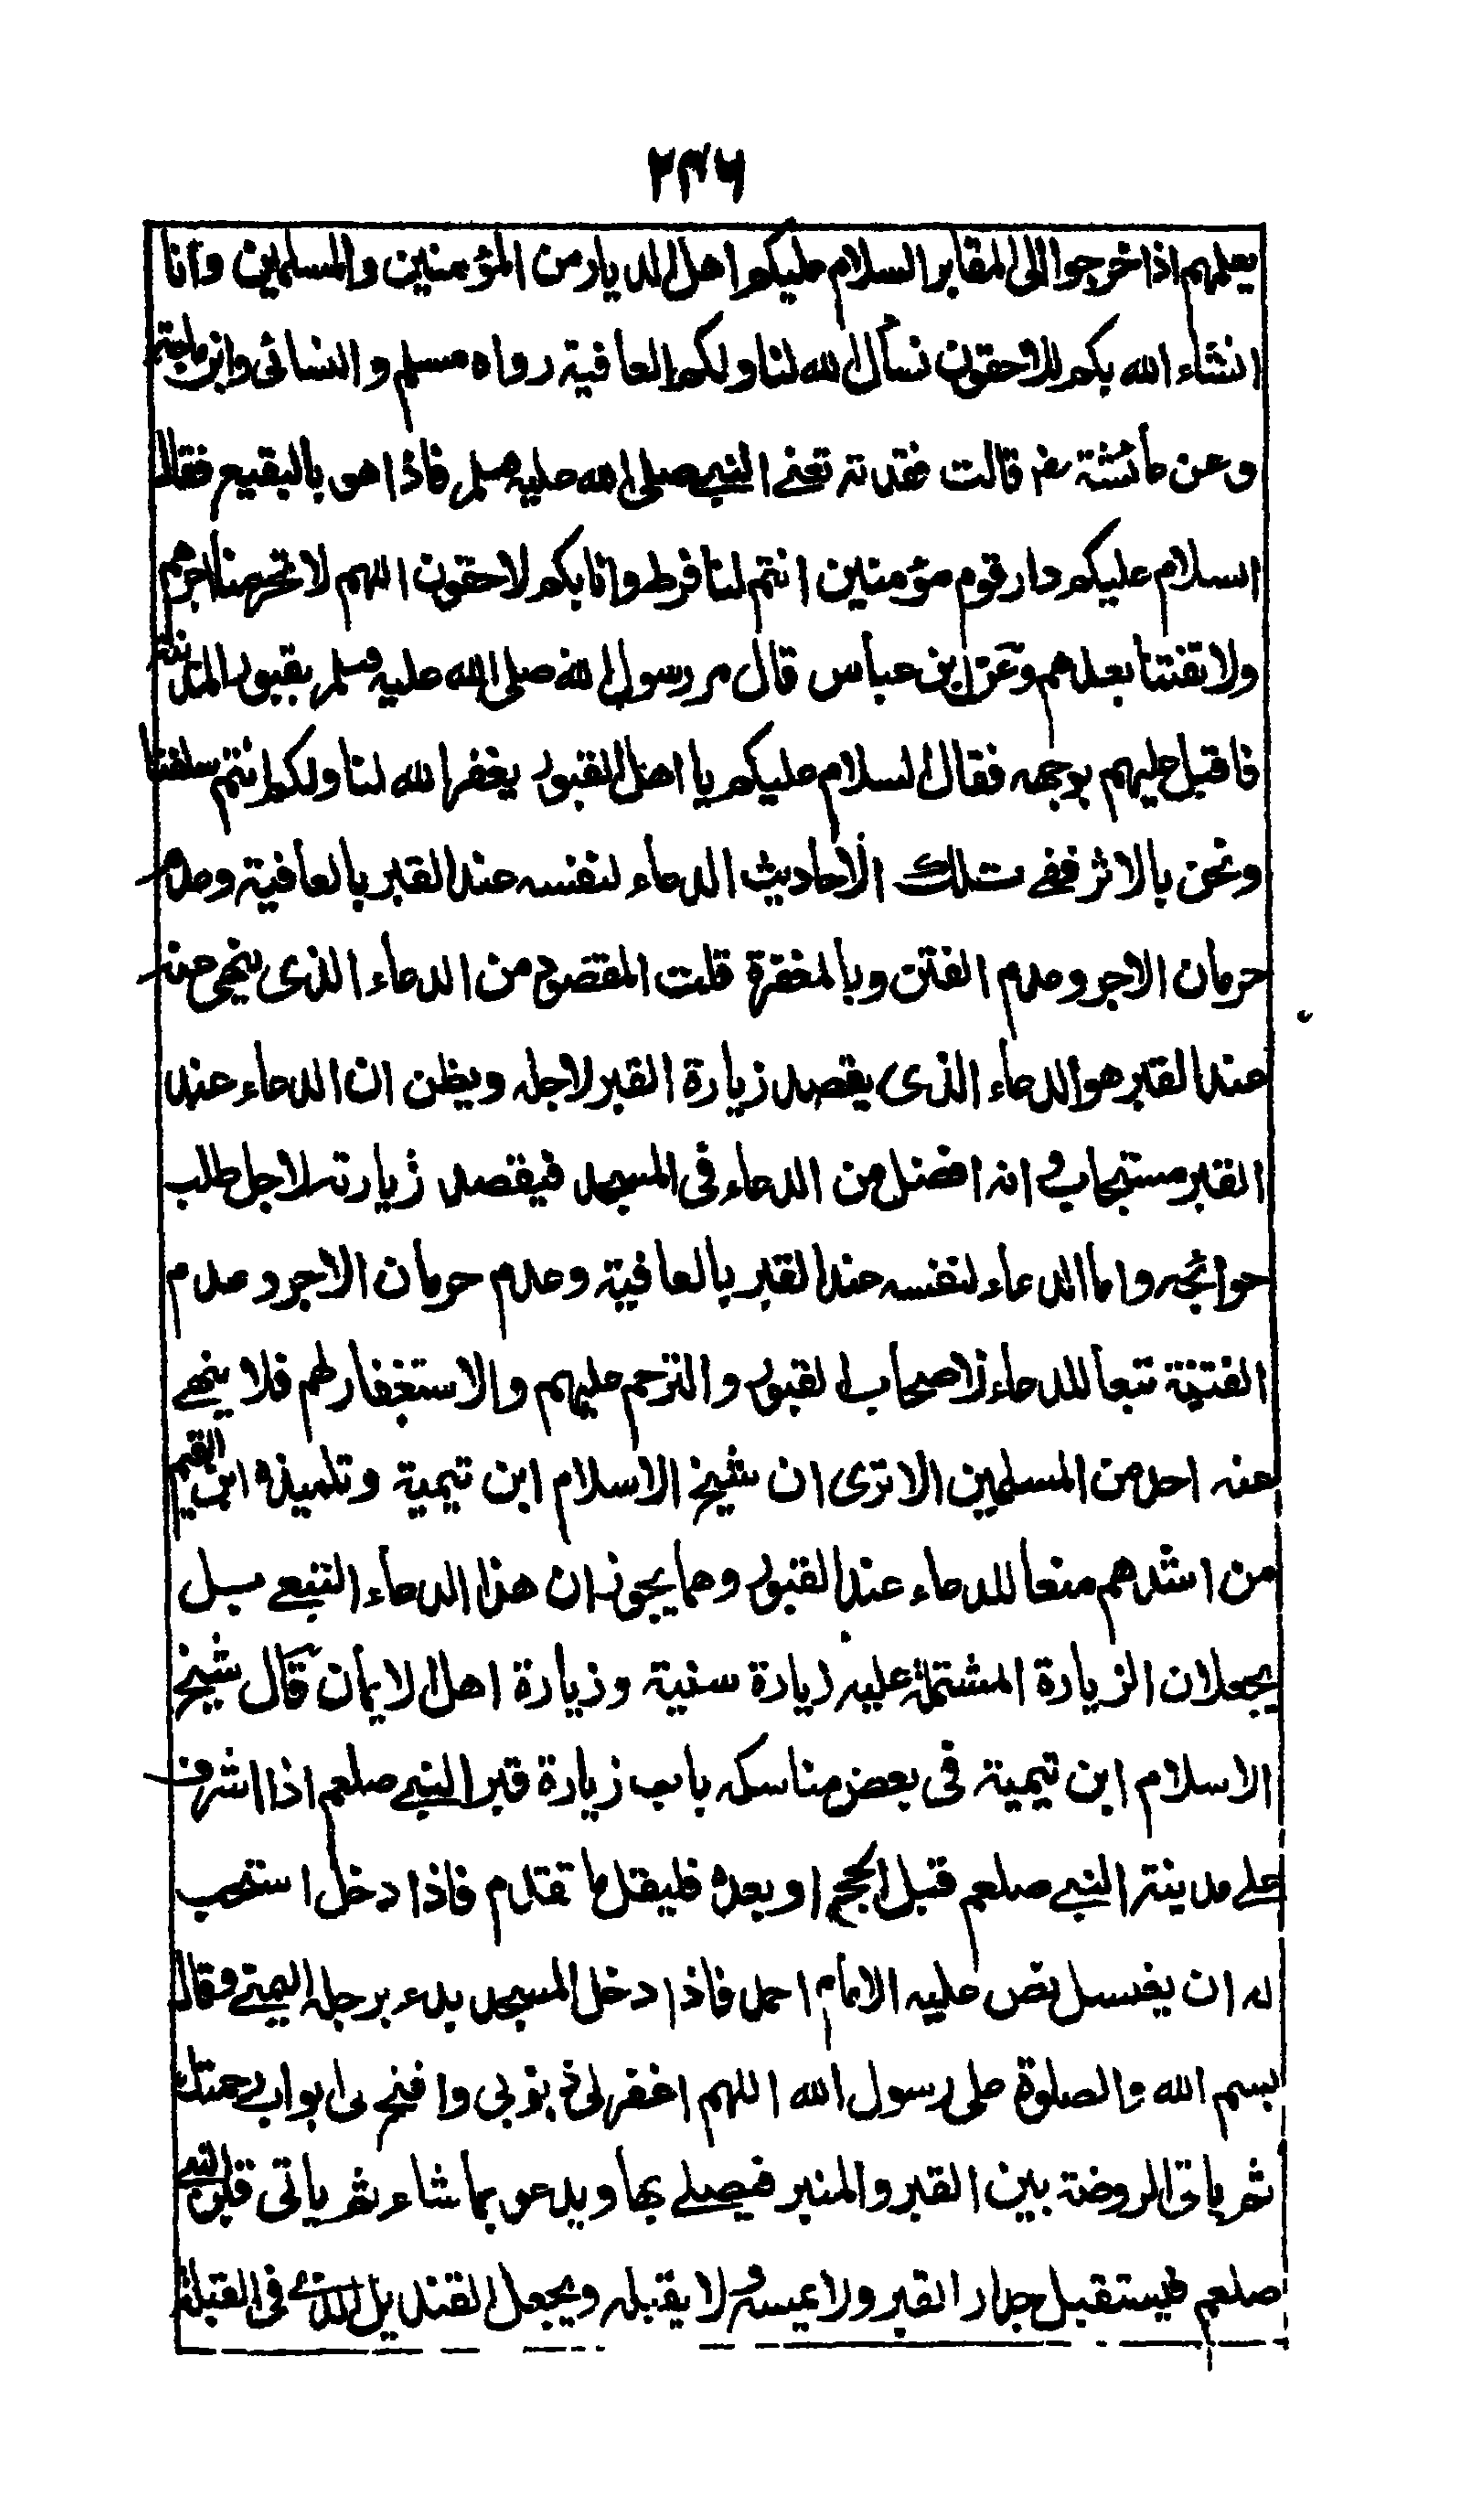 ٢٣٦
يعلمهم اذا خرجوا الى المقابر السلام عليكم اهل الديار من المؤمنين والمسلمين وانا
انشاء الله بكم للاحقون نسأل الله لنا ولكم العافية رواه مسلم والنسائى وابن ماجة
وعن عائشة رض قالت فقدته تعنے النبے صلى الله عليه وسلم فاذا هو بالبقيع فقال
السلام عليكم دار قوم مؤمنين انتم لنا فرط وانا بكم لاحقون اللهم لا تحرمنا اجرهم
ولا تفتنا بعدهم وعن ابن عباس قال مر رسول الله صلى الله عليه وسلم بقبور المدينة
فاقبل عليهم بوجهه فقال السلام عليكم يا اهل القبور يغفر الله لنا ولكم انتم سلفنا
ونحن بالاثر ففے تلك الاحاديث الدعاء لنفسه عند القبر بالعافية وعدم
حرمان الاجر وعدم الفتن وبالمغفرة قلت المقصود من الدعاء الذى ينهى عنه
عند القبر هو الدعاء الذى يقصد زيارة القبر لاجله ويظن ان الدعاء عند
القبر مستجاب وانه افضل من الدعاء فى المسجد فيقصد زيارته لاجل طلب
حوائجه واما الدعاء لنفسه عند القبر بالعافية وعدم حرمان الاجر وعدم
الفتنة تبعا للدعاء لاصحاب القبور والترحم عليهم والاستغفار لهم فلا ينهے
عنه احد من المسلمين الا ترى ان شيخ الاسلام ابن تيمية وتلميذه ابن القيم
من اشدهم منعا للدعاء عند القبور وهما يجوزان هذا الدعاء التبعے بل
يجعلان الزيارة المشتملة عليه زيارة سنية وزيارة اهل الايمان قال شيخ
الاسلام ابن تيمية فى بعض مناسكه باب زيارة قبر النبے صلعم اذا اشرف
علے مدينة النبے صلعم قبل الحج او بعده فليقل ما تقدم فاذا دخل استحب
له ان يغسل نص عليه الامام احمد فاذا دخل المسجد بدء برجله اليمنے وقال
بسم الله والصلوة على رسول الله اللهم اغفر لى ذنوبى وافتح لى ابواب رحمتك
ثم ياتى الروضة بين القبر والمنبر فيصلے بها ويدعو بما شاء ثم ياتى قبر النبے
صلعم فيستقبل جدار القبر ولا يمسه ولا يقبله ويجعل القنديل الذے فى القبلة